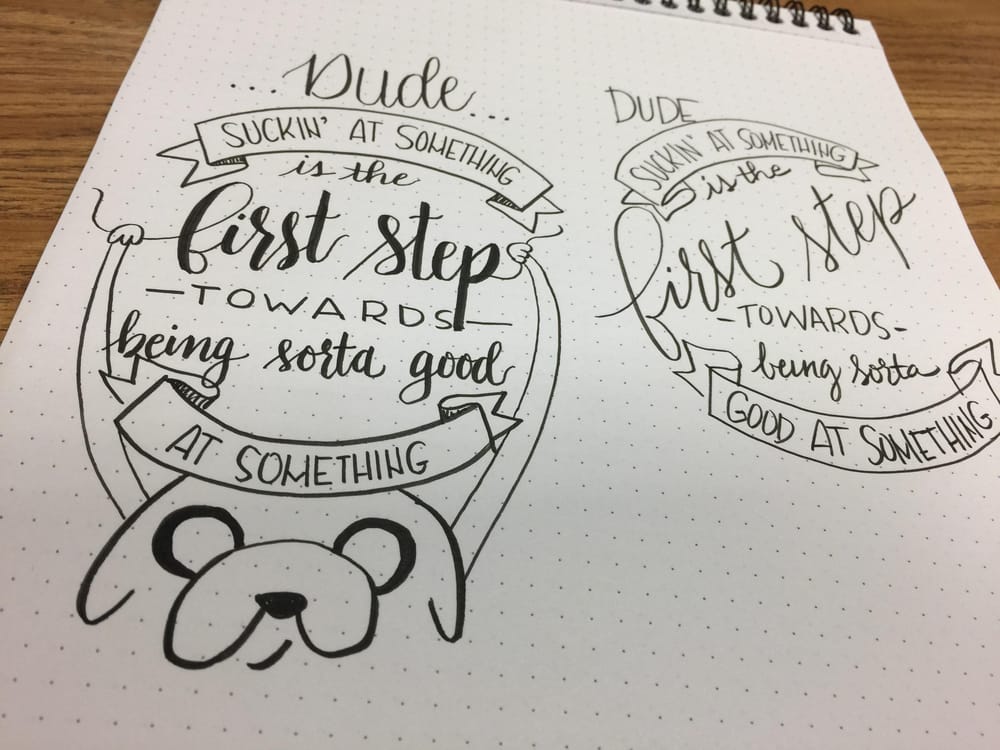 ...Dude...
SUCKIN' AT SOMETHING
is the
first step
-TOWARDS-
being sorta good
AT SOMETHING
DUDE
SUCKIN' AT SOMETHING
is the
first step
-TOWARDS-
being sorta
GOOD AT SOMETHING